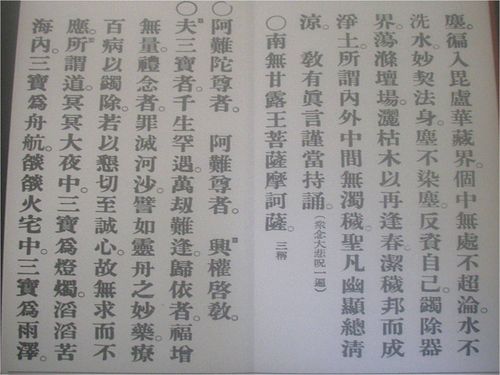 塵。徧入毘盧華藏界。個中無處不超淪。水不
洗水。妙契法身。塵不染塵。反資自己。蠲除器
界。蕩滌壇場。灑枯木以再逢春。潔穢邦而成
淨土。所謂內外中間無濁穢。聖凡幽顯總清
涼。 教有眞言謹當持誦。(眾念大悲咒一遍)
〇南無甘露王菩薩摩訶薩。三稱
〇阿難陀尊者。 阿難尊者。 興權啓教。
〇夫三寶者。千生罕遇。萬劫難逢。歸依者。福增
無量。禮念者。罪滅河沙。譬如靈舟之妙藥。療
百病以蠲除。若以懇切至誠心。故無求而不
應。所謂道。冥冥大夜中。三寶爲燈燭。滔滔苦
海內。三寶爲舟航。燄燄火宅中。三寶爲雨澤。